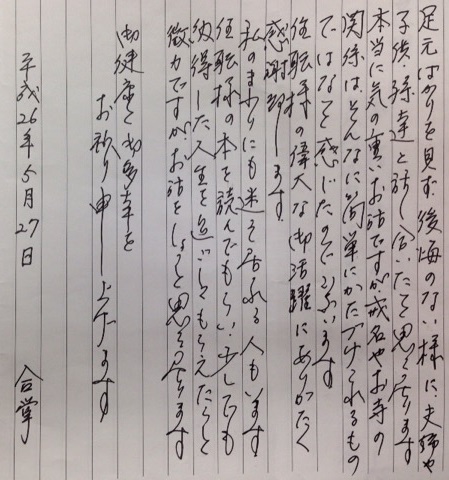 足元ばかりを見ず、後悔のない様に、夫婦や
子供、孫達と話し合いたいと思って居ります
本当に気の重いお話ですが、戒名やお寺の
関係は、そんなに簡単にかたづけられるもの
ではないと感じたのでございます
住職様の偉大な御活躍にありがたく
感謝致します。
私のまわりにも迷って居られる人もいます
住職様の本を読んでもらい、少しでも
納得した人生を過ごしてもらえたらと
微力ですが、お話をしようと思って居ります
御健康と御多幸を
お祈り申し上げます
平成26年5月27日
合掌